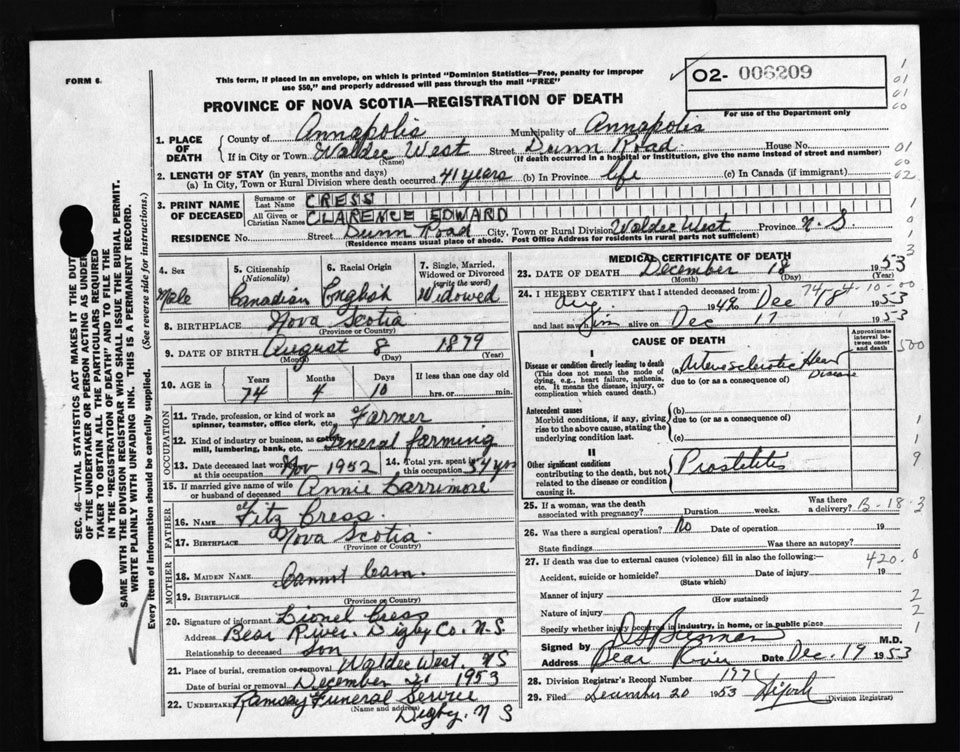 FORM 6.
This form, if placed in an envelope, on which is printed "Dominion Statistics—Free, penalty for improper
use $50," and properly addressed will pass through the mail "FREE"
O2- 006209
For use of the Department only
PROVINCE OF NOVA SCOTIA—REGISTRATION OF DEATH
1. PLACE OF DEATH
County of Annapolis Municipality of Annapolis
If in City or Town Waldec West Street Dunn Road House No.
(Name) (If death occurred in a hospital or institution, give the name instead of street and number)
2. LENGTH OF STAY (in years, months and days)
(a) In City, Town or Rural Division where death occurred 41 years (b) In Province life (c) In Canada (if immigrant)
3. PRINT NAME OF DECEASED
Surname or Last Name CRESS
All Given or Christian Names CLARENCE EDWARD
RESIDENCE No. Street Dunn Road City, Town or Rural Division Waldec West Province N.S
(Residence means usual place of abode. Post Office Address for residents in rural parts not sufficient)
4. Sex Male
5. Citizenship (Nationality) Canadian
6. Racial Origin English
7. Single, Married, Widowed or Divorced (write the word) Widowed
8. BIRTHPLACE Nova Scotia
(Province or Country)
9. DATE OF BIRTH August 8 1879
(Month) (Day) (Year)
10. AGE in Years Months Days If less than one day old
74 4 10 hrs. or min.
OCCUPATION
11. Trade, profession, or kind of work as spinner, teamster, office clerk, etc. Farmer
12. Kind of industry or business, as cotton mill, lumbering, bank, etc. General farming
13. Date deceased last worked at this occupation Nov 1952 14. Total yrs. spent in this occupation 54 yrs
15. If married give name of wife or husband of deceased Annie Larrimore
FATHER
16. Name Fitz Cress
17. Birthplace Nova Scotia
(Province or Country)
MOTHER
18. MAIDEN NAME
19. BIRTHPLACE
(Province or Country)
20. Signature of informant Lionel Cress
Address Bear River. Digby Co. N.S.
Relationship to deceased Son
21. Place of burial, cremation or removal Waldec West. NS
Date of burial or removal December 20 1953
22. Undertaker Ramsay Funeral Service
(Name and address) Digby. N S
MEDICAL CERTIFICATE OF DEATH
23. DATE OF DEATH December 18 1953
(Month) (Day)
24. I HEREBY CERTIFY that I attended deceased from:
Aug. 1948 Dec 18 1953
and last saw him alive on Dec 17 1953
CAUSE OF DEATH
Approximate interval between onset and death
I
Disease or condition directly leading to death
(This does not mean the mode of dying, e.g., heart failure, asthenia, etc. It means the disease, injury, or complication which caused death.)
(a) Arteriosclerotic Heart Disease
due to (or as a consequence of)
Antecedent causes
Morbid conditions, if any, giving rise to the above cause, stating the underlying condition last.
(b)
due to (or as a consequence of)
(c)
II
Other significant conditions
contributing to the death, but not related to the disease or condition causing it.
Prostatitis
25. If a woman, was the death associated with pregnancy? Duration weeks. Was there a delivery?
26. Was there a surgical operation? No Date of operation 19
State findings Was there an autopsy?
27. If death was due to external causes (violence) fill in also the following:—
Accident, suicide or homicide? Date of injury 19
(State which)
Manner of injury
(How sustained)
Nature of injury
Specify whether injury occurred in industry, in home, or in public place
Signed by M.D.
Address Bear River Date Dec. 19 1953
28. Division Registrar's Record Number
29. Filed December 20 1953 (Division Registrar)
SEC. 46—VITAL STATISTICS ACT MAKES IT THE DUTY
OF THE UNDERTAKER OR PERSON ACTING AS UNDER-
TAKER TO OBTAIN ALL THE PARTICULARS REQUIRED
IN THE "REGISTRATION OF DEATH" AND TO FILE THE
SAME WITH THE DIVISION REGISTRAR WHO SHALL ISSUE THE BURIAL PERMIT.
WRITE PLAINLY WITH UNFADING INK. THIS IS A PERMANENT RECORD.
Every item of information should be carefully supplied. (See reverse side for instructions.)